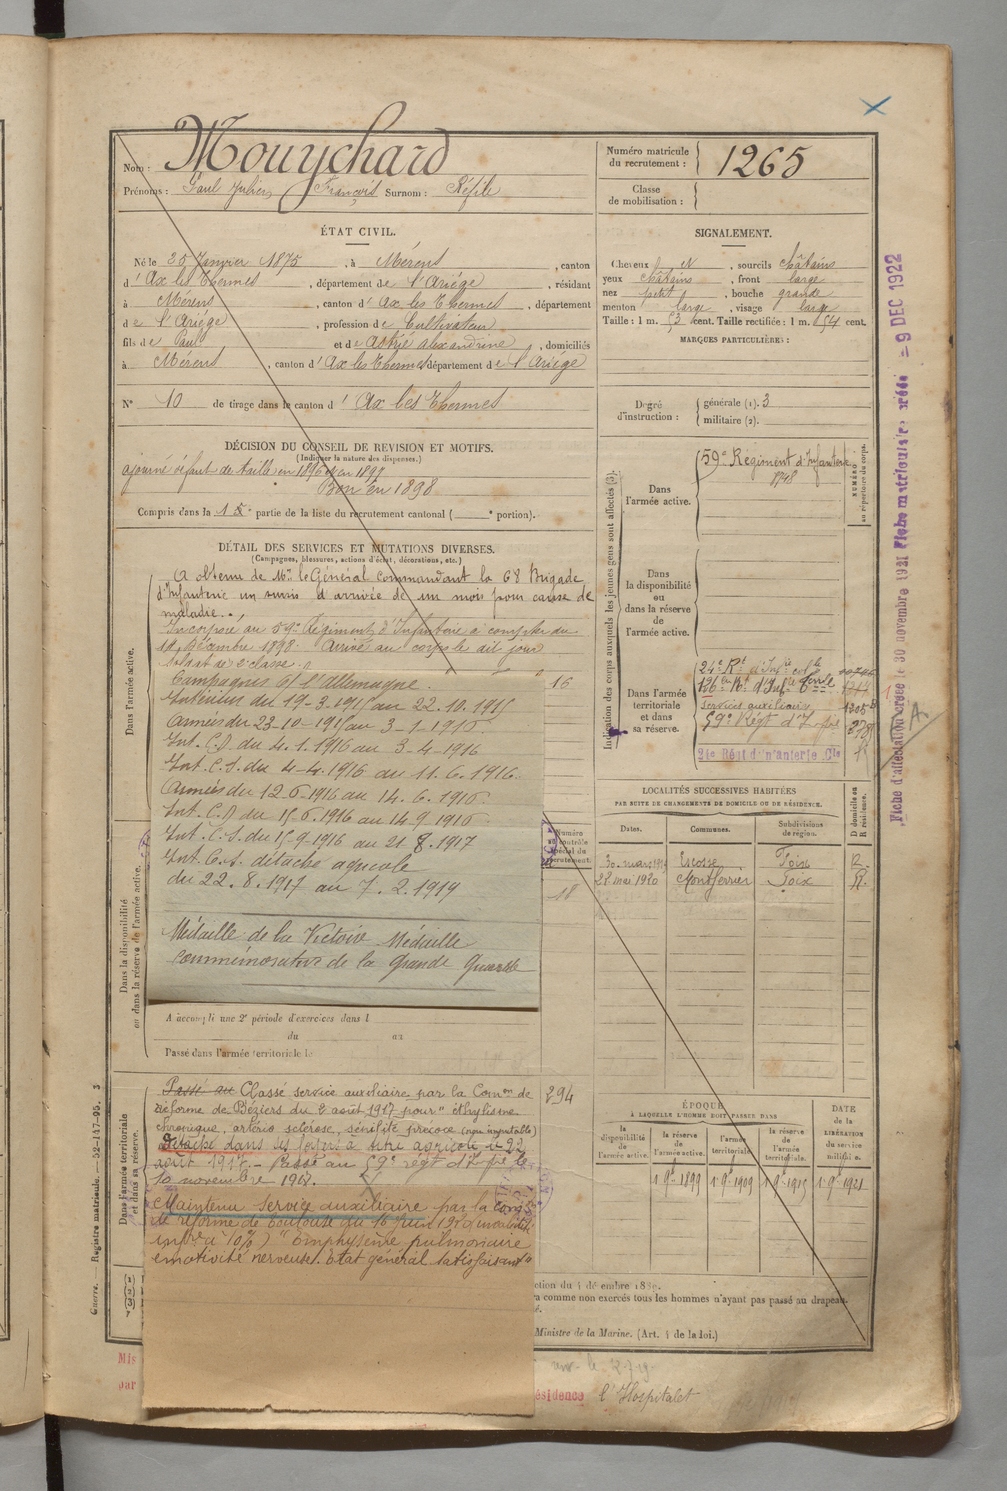 Nom : Mouychard
Prénoms : Paul Julien François Surnom : Réfile
Numéro matricule du recrutement : 1265
Classe de mobilisation :
ÉTAT CIVIL.
Né le 25 Janvier 1875, à Mérens, canton
d'Ax les Thermes, département de l'Ariége, résidant
à Mérens, canton d'Ax les Thermes, département
de l'Ariége, profession de Cultivateur
fils de Paul et de Astrié alexandrine, domiciliés
à Mérens, canton d'Ax les Thermes département de l'Ariége
N° 10 de tirage dans le canton d'Ax les Thermes
SIGNALEMENT.
Cheveux N, sourcils châtains
yeux châtains, front large
nez petit, bouche grande
menton large, visage large
Taille : 1 m. 53 cent. Taille rectifiée : 1 m. 54 cent.
MARQUES PARTICULIÈRES :
Degré d'instruction : générale (1). 3
militaire (2).
DÉCISION DU CONSEIL DE REVISION ET MOTIFS.
(Indiquer la nature des dispenses.)
ajourné défaut de taille en 1896 et en 1897
Bon en 1898
Compris dans la 1e partie de la liste du recrutement cantonal ( e portion).
DÉTAIL DES SERVICES ET MUTATIONS DIVERSES.
(Campagnes, blessures, actions d'éclat, décorations, etc.)
Dans l'armée active.
A obtenu de Mr. le Général commandant la 68 Brigade
d'Infanterie un sursis d'arrivée de un mois pour cause de
maladie.
Incorporé au 59e Régiment d'Infanterie à compter du
Décembre 1898. Arrivé au corps le dit jour
Soldat de 2e classe.
Campagnes c/ l'Allemagne. 16
Intérieur du 19-3-1915 au 22.10.1915
Armées du 23-10-1915 au 3-1-1916
Int. C.D du 4.1.1916 au 3-4-1916
Int. C.S. du 4-4.1916 au 11.6.1916
Armées du 12-6-1916 au 14.6.1916
Int. C.D du 15.6.1916 au 14.9.1916
Int. C.S. du 15.9.1916 au 21.8.1917
Int. C.S. détaché agricole
du 22.8.1917 au 7.2.1919
Médaille de la Victoire Médaille
commémorative de la Grande Guerre
Dans la disponibilité ou dans la réserve de l'armée active.
18
A accompli une 2e période d'exercices dans l
du au
Passé dans l'armée territoriale le
Dans l'armée territoriale et dans sa réserve.
Passé au Classé service auxiliaire par la Comon de 294
réforme de Béziers du 2 août 1917 pour "éthylisme
chronique, artério sclérose, sénilité précoce (non imputable)
Détaché dans ses foyers à titre agricole le 22
août 1917. - Passé au 59e régt d'Inf rie le
10 novembre 1918.
Maintenu service auxiliaire par la Comon
de réforme de Toulouse du 16 Juin 1920 invalidité
infre à 10%) "Emphysème pulmonaire
émotivité nerveuse. Etat général satisfaisant"
Indication des corps auxquels les jeunes gens sont affectés (3).
Dans l'armée active.
59e Régiment d'Infanterie
NUMÉRO au répertoire du corps.
Dans la disponibilité ou dans la réserve de l'armée active.
Dans l'armée territoriale et dans sa réserve.
24e Rt d'Infie colle
126e Rt d'Infie Terrle
Services auxiliaires
59e Régt d'Infrie
24e Régt d'Infanterie Cle
LOCALITÉS SUCCESSIVES HABITÉES
PAR SUITE DE CHANGEMENTS DE DOMICILE OU DE RÉSIDENCE.
Numéro au contrôle spécial du recrutement.
Dates. Communes. Subdivisions de région. D domicile ou R résidence.
30 mars 1919 Escosse Foix R.
28 mai 1920 Montferrier Foix R.
ÉPOQUE
À LAQUELLE L'HOMME DOIT PASSER DANS
la disponibilité de l'armée active. la réserve de l'armée active. l'armée territoriale. la réserve de l'armée territoriale.
DATE de la LIBÉRATION du service militaire.
1 9e 1899 1 9e 1909 1 9e 1915 1 9e 1921
ction du 4 décembre 1889.
ra comme non exercés tous les hommes n'ayant pas passé au drapeau.
Ministre de la Marine. (Art. 4 de la loi.)
Mis
par
ésidence l'Hospitalet
Guerre. Registre matricule. 52-147-95. 3
Fiche d'affectation créée le 30 novembre 1921 Fiche matriculaire créée = 9 DEC 1922